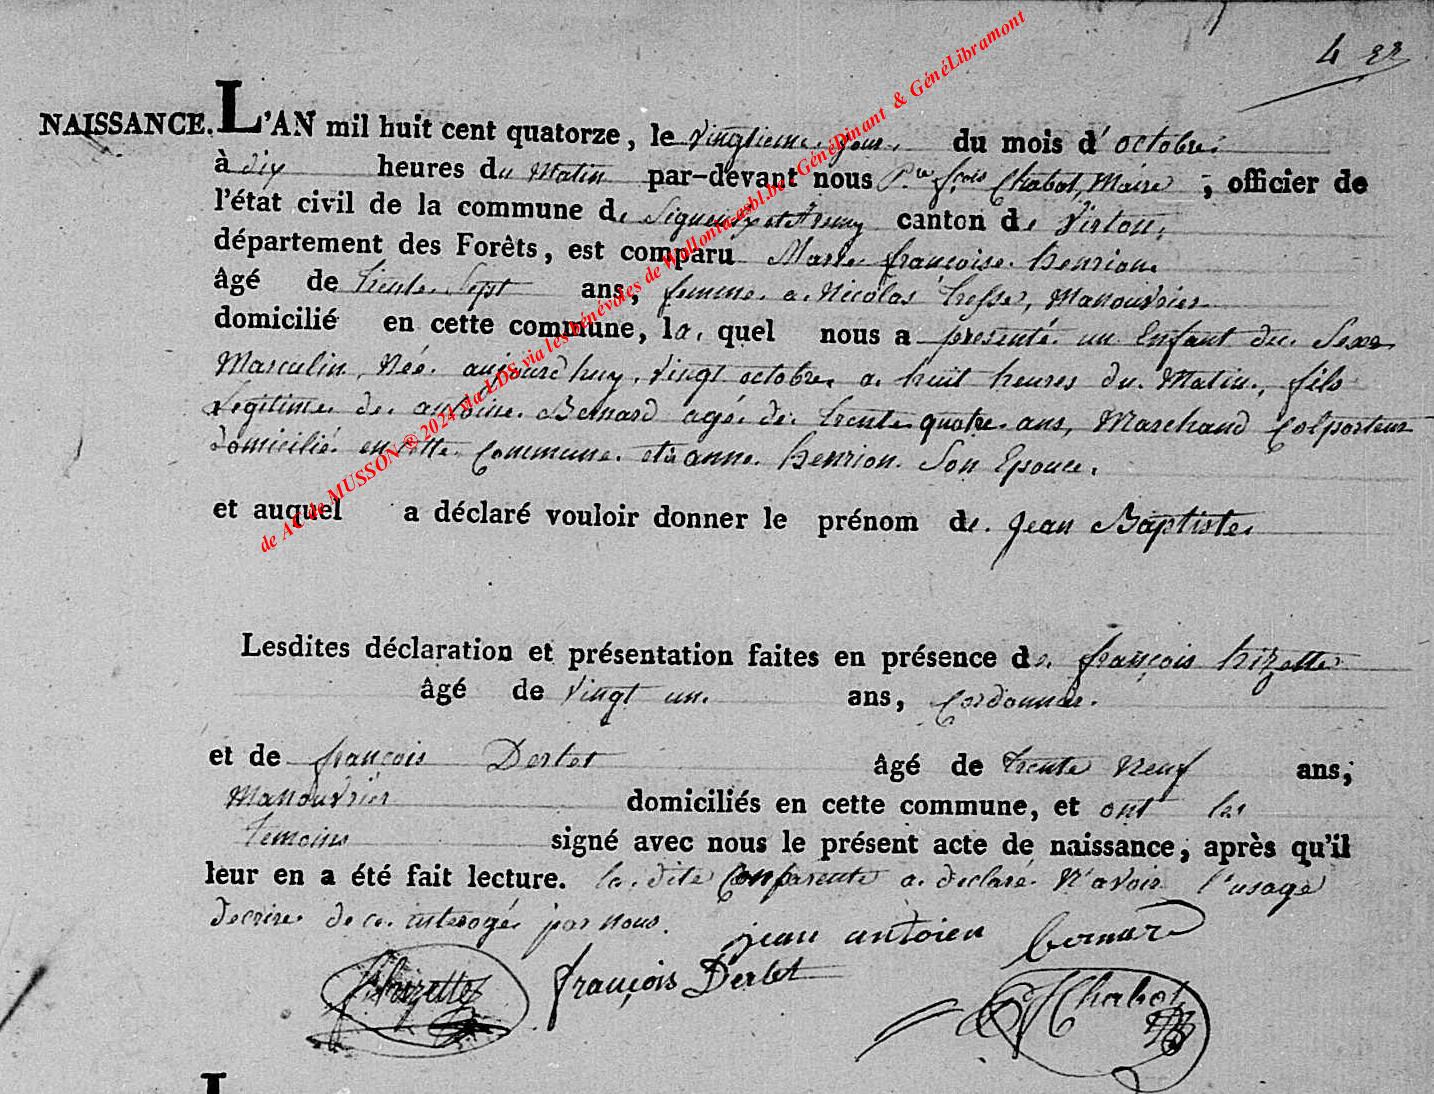 4 er
NAISSANCE. L'AN mil huit cent quatorze, le vingtieme jour, du mois d'octobre
à dix heures du Matin par-devant nous Pre fçois Chabot, Maire, officier de
l'état civil de la commune de Signeulx et canton de Virton,
département des Forêts, est comparu Marie françoise henrion
âgé de trente Sept ans, femme a Nicolas, Manouvrier
domicilié en cette commune, la quel nous a presenté un Enfant du Sexe
Masculin, Née aujourdhuy, vingt octobre a huit heures du Matin, fils
Legitime de antoine Bernard agé de trente quatre ans, Marchand Colporteur
domicilié en cette Commune et anne henrion Son Epouce.
et auquel a déclaré vouloir donner le prénom de jean Baptiste
Lesdites déclaration et présentation faites en présence de françois hizette
âgé de vingt un ans, Cordonnier.
et de françois Derlet âgé de trente Neuf ans,
Manouvrier domiciliés en cette commune, et ont les
temoins signé avec nous le présent acte de naissance, après qu'il
leur en a été fait lecture. la dite Comparente a declaré N'avoir l'usage
decrire de ce interogé par nous.
jean antoien bernard
f hizette françois Derlet Chabot
de AC de MUSSON ® 2024 via LDS via les bénévoles de Wallonia-asbl.be - GénéDinant & GénéLibramont